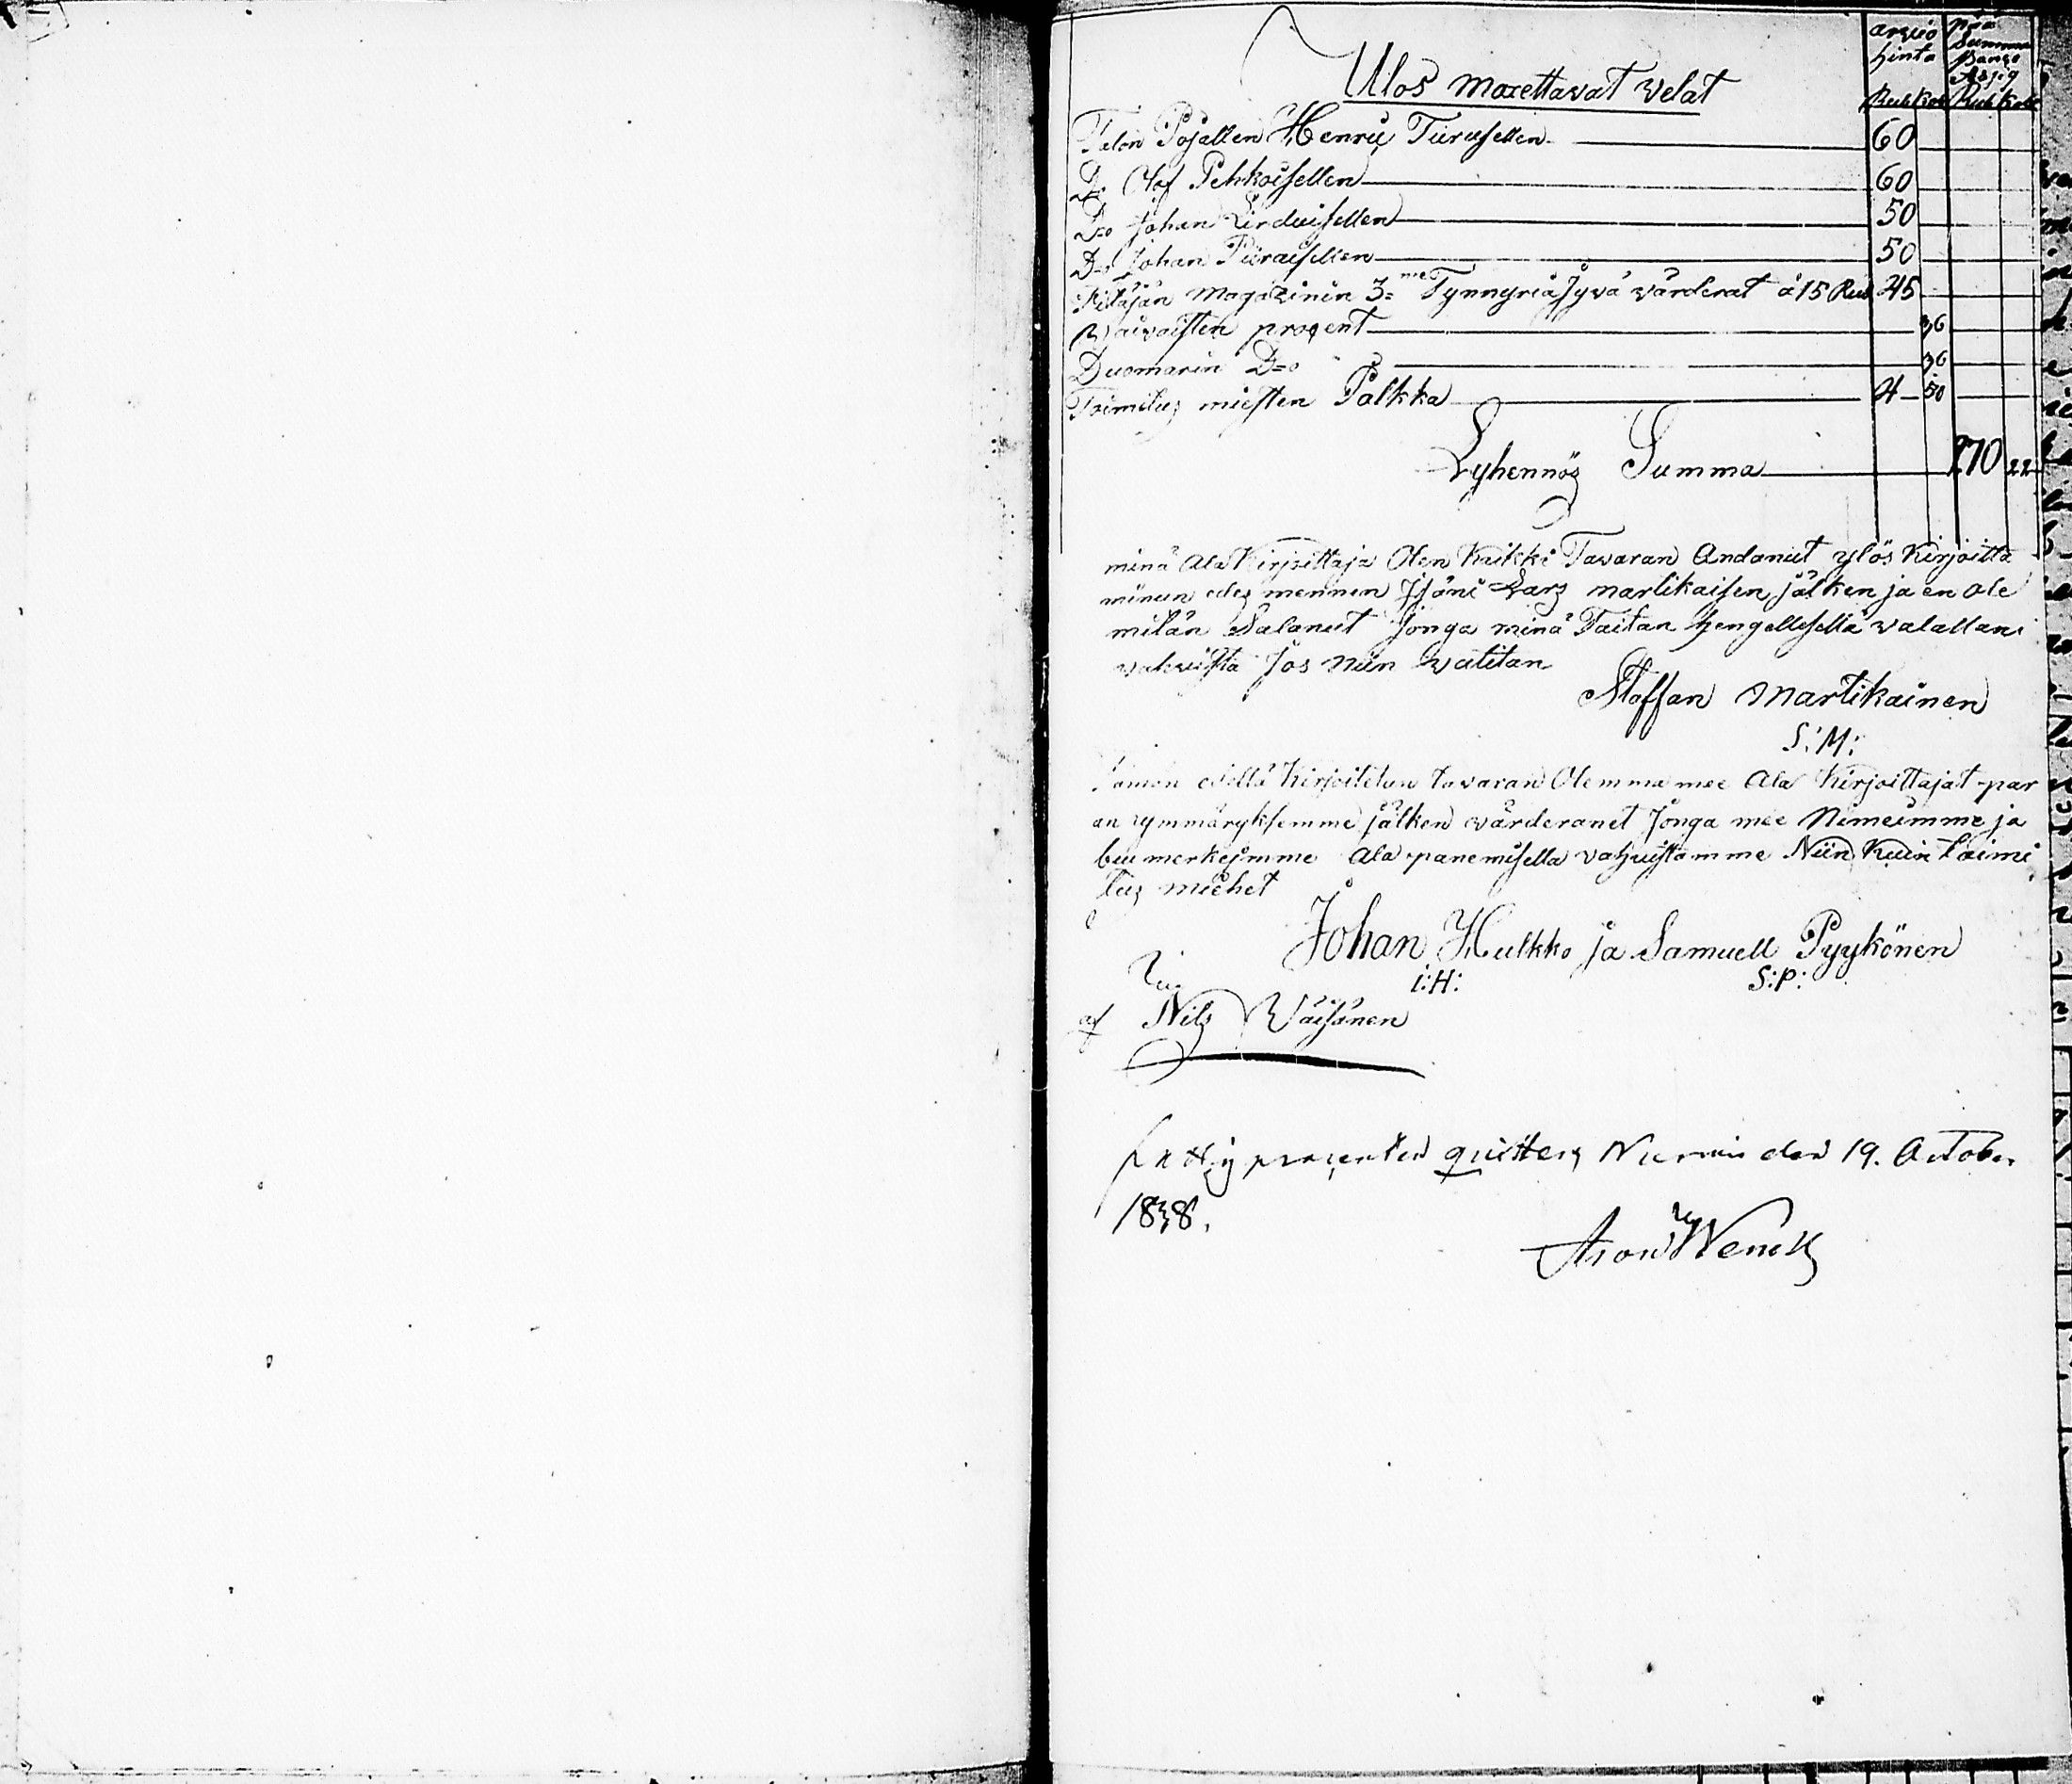 arwio hinta
Pää Summa Banco Assig
Rub Kop Rub Kop
Ulos maxettavat velat
Talon Pojallen Henrij Tiirusellen 60
D:o Olof Pehkoisellen 60
D:o Johan Lirduisellen 50
D:o Johan Piiraisellen 50
Pitäjän Magazinin 3:me Tynnyriä Jyvä värderat å 15 Rub 45
Waivaisten procent 36
Duomarin D:o 36
Toimitus miesten Palkka 4 50
Lyhennös Summa 270 22
minä ala Kirjoittaja Olen Kaikki Tavaran Andanut ylös Kirjoitta
minun edes mennen Isäni Lars martikaisen jälken ja en ole
mitän Salanut Jonga minä Taitan hengellisellä valallani
vahvista Jos niin vatitan
Staffan Martikainen
S:M:
Tämän edellä Kirjoitetun tavaran Olemma mee Ala Kirjoittajat par
an ymmäryksemme jälken värderanet Jonga mee Nimeimme ja
bumerkeimme Ala panemisella vahvistamme Niin Kuin toimi
tus miehet
Johan Hulkko ja Samuell Pyykönen
i:H: S:P:
af Nils Wäisänen
procenten quitteras Nurmis den 19. October
1838.
Aron Wenell